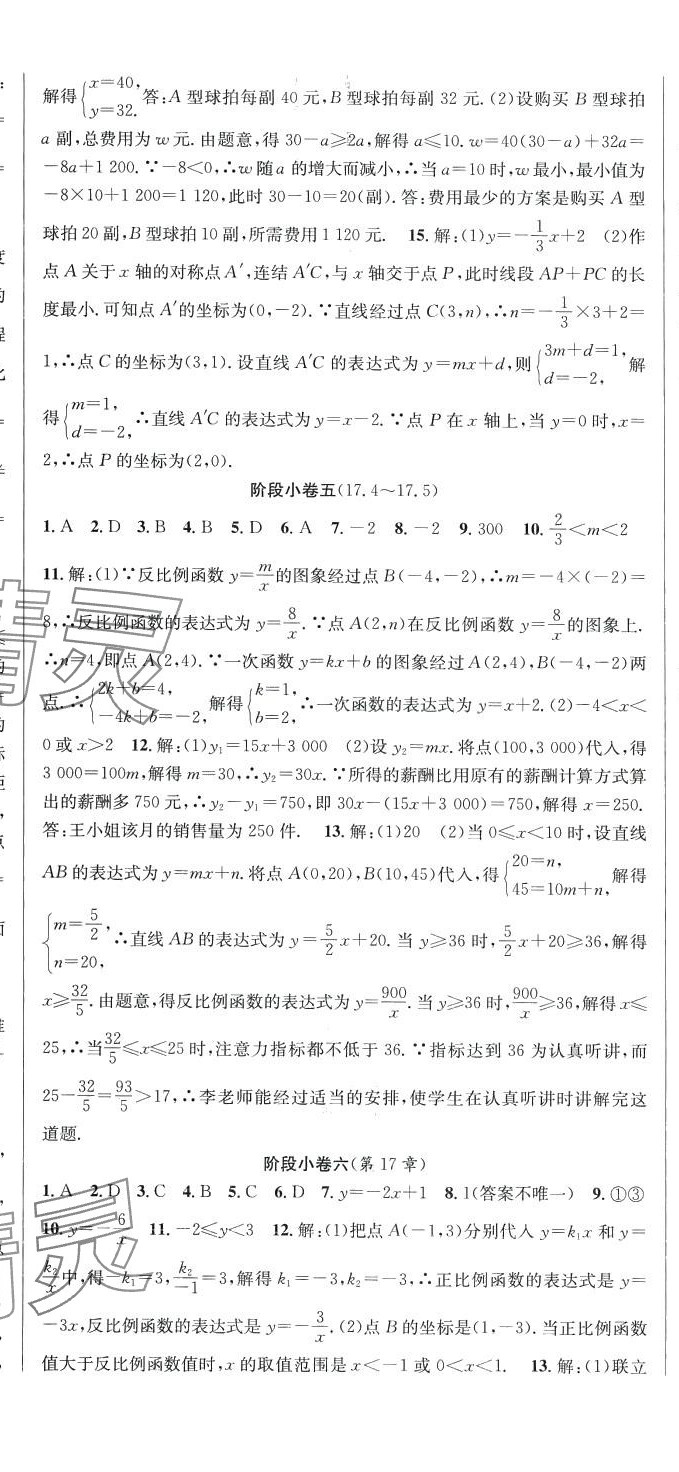 解得{x=40, y=32. 答:A 型球拍每副 40 元,B 型球拍每副 32 元. (2)设购买 B 型球拍
a 副,总费用为 w 元. 由题意,得 30-a≥2a,解得 a≤10. w=40(30-a)+32a=
-8a+1 200. ∵-8<0,∴w 随 a 的增大而减小,∴当 a=10 时,w 最小,最小值为
-8×10+1 200=1 120,此时 30-10=20(副). 答:费用最少的方案是购买 A 型
球拍 20 副,B 型球拍 10 副,所需费用 1 120 元. 15. 解:(1)y=-1/3x+2 (2)作
点 A 关于 x 轴的对称点 A′,连结 A′C,与 x 轴交于点 P,此时线段 AP+PC 的长
度最小. 可知点 A′的坐标为(0,-2). ∵直线经过点 C(3,n),∴n=-1/3×3+2=
1,∴点 C 的坐标为(3,1). 设直线 A′C 的表达式为 y=mx+d,则{3m+d=1, d=-2, 解
得{m=1, d=-2, ∴直线 A′C 的表达式为 y=x-2. ∵点 P 在 x 轴上,当 y=0 时,x=
2,∴点 P 的坐标为(2,0).
阶段小卷五(17.4~17.5)
1. A 2. D 3. B 4. B 5. D 6. A 7. -2 8. -2 9. 300 10. 2/3<m<2
11. 解:(1)∵反比例函数 y=m/x的图象经过点 B(-4,-2),∴m=-4×(-2)=
8,∴反比例函数的表达式为 y=8/x. ∵点 A(2,n)在反比例函数 y=8/x的图象上.
∴n=4,即点 A(2,4). ∵一次函数 y=kx+b 的图象经过 A(2,4),B(-4,-2)两
点.∴{2k+b=4, -4k+b=-2, 解得{k=1, b=2, ∴一次函数的表达式为 y=x+2. (2)-4<x<
0 或 x>2 12. 解:(1)y₁=15x+3 000 (2)设 y₂=mx. 将点(100,3 000)代入,得
3 000=100m,解得 m=30,∴y₂=30x. ∵所得的薪酬比用原有的薪酬计算方式算
出的薪酬多 750 元,∴y₂-y₁=750,即 30x-(15x+3 000)=750,解得 x=250.
答:王小姐该月的销售量为 250 件. 13. 解:(1)20 (2)当 0≤x<10 时,设直线
AB 的表达式为 y=mx+n. 将点 A(0,20),B(10,45)代入,得{20=n, 45=10m+n, 解得
{m=5/2, n=20, ∴直线 AB 的表达式为 y=5/2x+20. 当 y≥36 时,5/2x+20≥36,解得
x≥32/5. 由题意,得反比例函数的表达式为 y=900/x. 当 y≥36 时,900/x≥36,解得 x≤
25,∴当32/5≤x≤25 时,注意力指标都不低于 36. ∵指标达到 36 为认真听讲,而
25-32/5=93/5>17,∴李老师能经过适当的安排,使学生在认真听讲时讲解完这
道题.
阶段小卷六(第 17 章)
1. A 2. D 3. C 4. B 5. C 6. D 7. y=-2x+1 8. 1(答案不唯一) 9. ①③
10. y=-6/x 11. -2≤y<3 12. 解:(1)把点 A(-1,3)分别代入 y=k₁x 和 y=
k₂/x中,得-k₁=3,k₂/-1=3,解得 k₁=-3,k₂=-3,∴正比例函数的表达式是 y=
-3x,反比例函数的表达式是 y=-3/x. (2)点 B 的坐标是(1,-3). 当正比例函数
值大于反比例函数值时,x 的取值范围是 x<-1 或 0<x<1. 13. 解:(1)联立